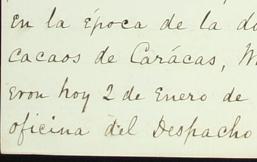 En la época de la
cacaos de Carácas,
eron hoy 2 de Enero de
oficina del Despacho